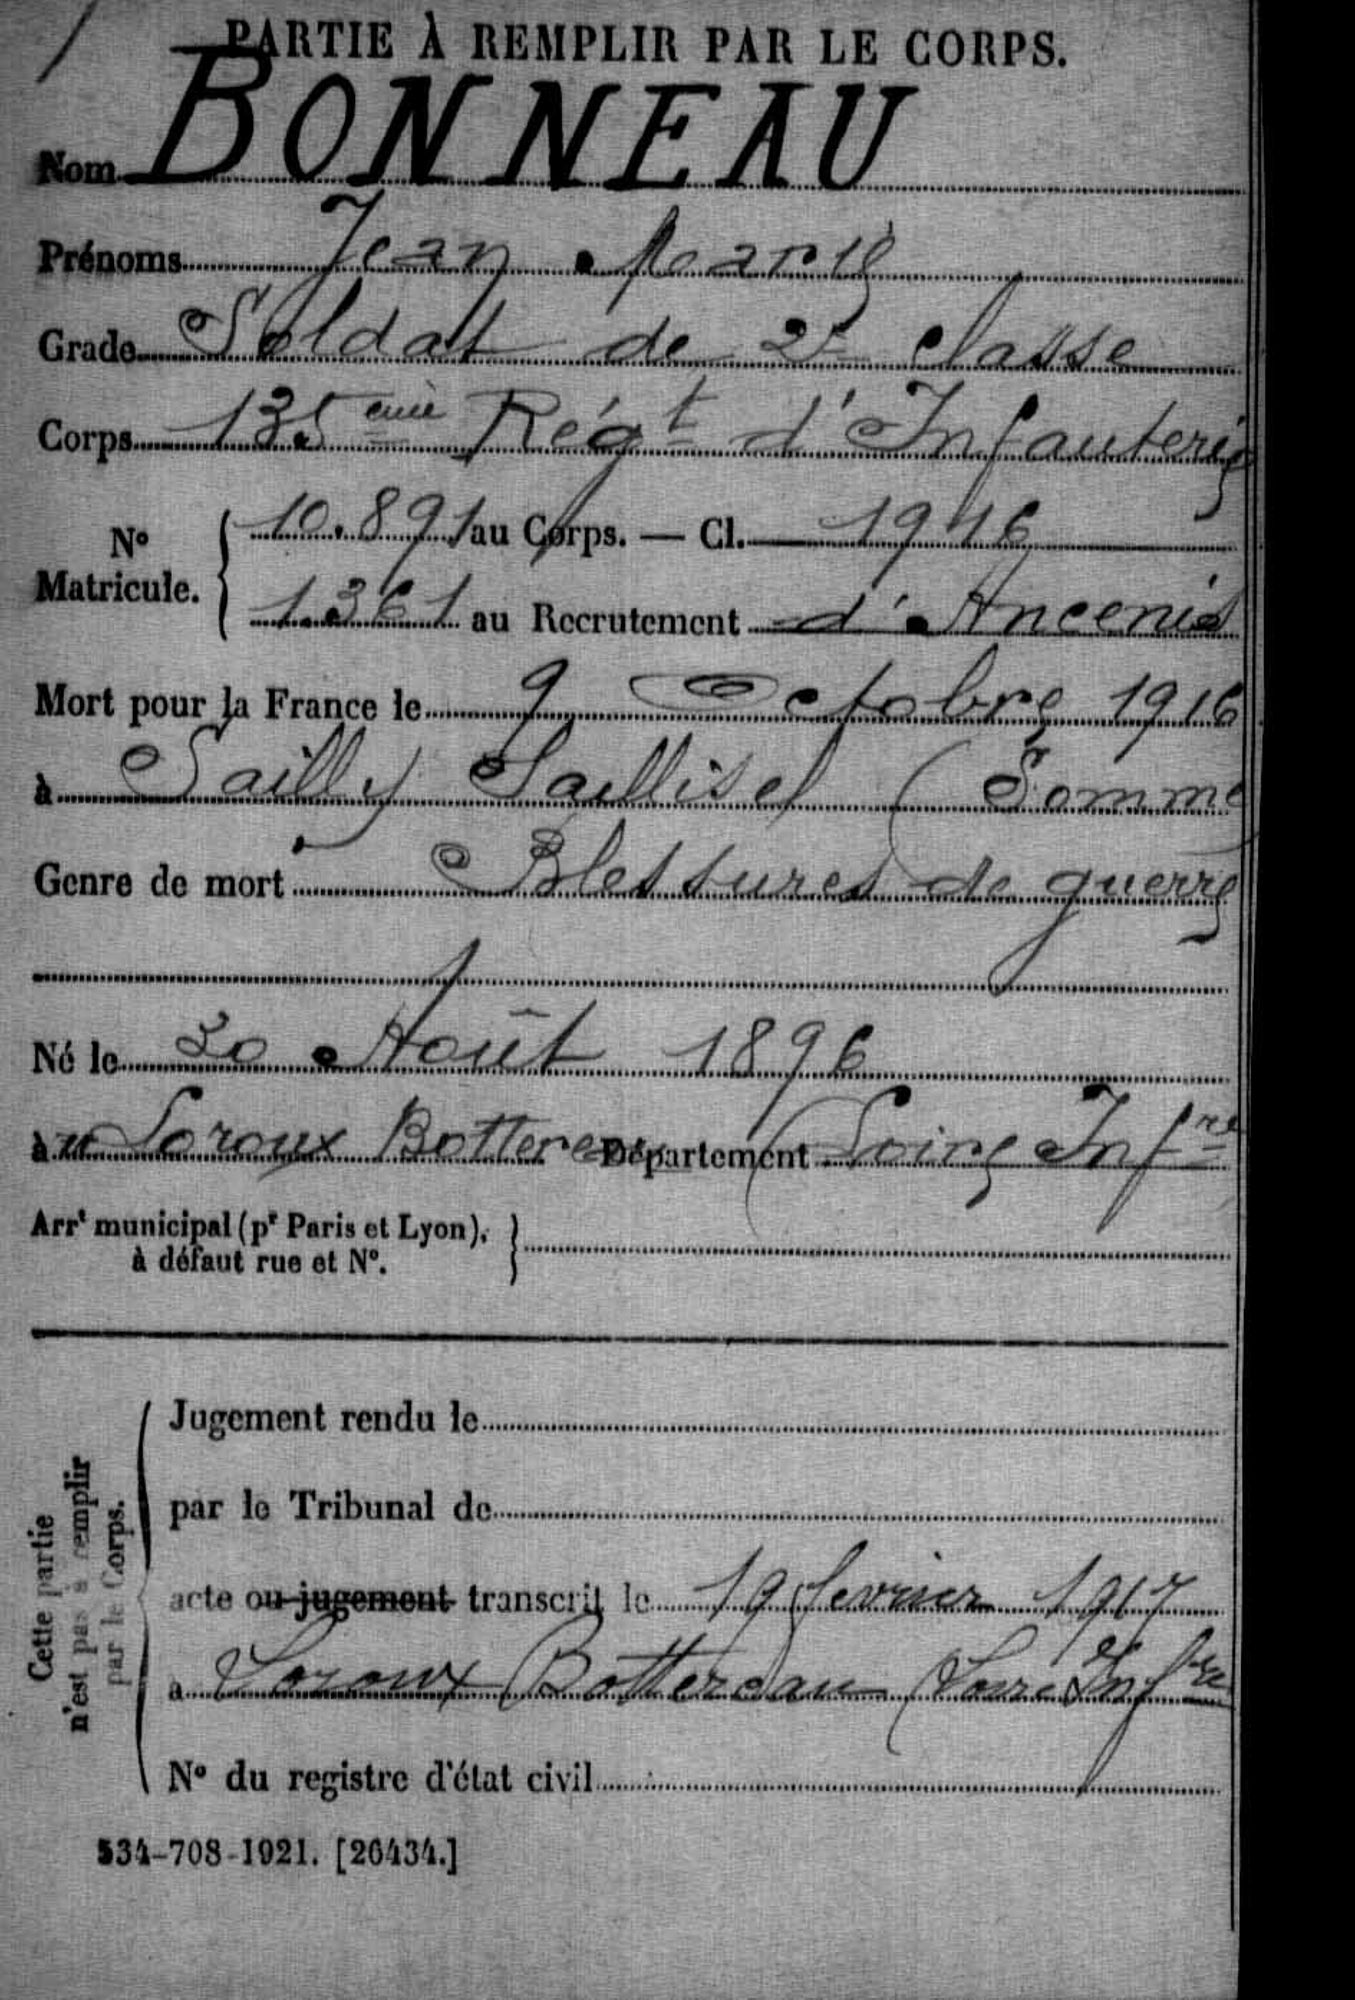 PARTIE À REMPLIR PAR LE CORPS.
Nom BONNEAU
Prénoms Jean Marie
Grade Soldat de 2e classe
Corps 135ème Régt d'Infanterie
No Matricule. { 10.891 au Corps. — Cl. 1916
1.361 au Recrutement d'Ancenis
Mort pour la France le 9 Octobre 1916
à Sailly Saillisel (Somme
Genre de mort Blessures de guerre
Né le 30 Août 1896
au Loroux Bottereau Département (Loire Infre
Arrt municipal (pr Paris et Lyon),
à défaut rue et No.
Cette partie
n'est pas à remplir
par le Corps.
Jugement rendu le
par le Tribunal de
acte ou jugement transcrit le 19 février 1917
à Loroux Bottereau (Loire Infre
No du registre d'état civil
534-708-1921. [26434.]